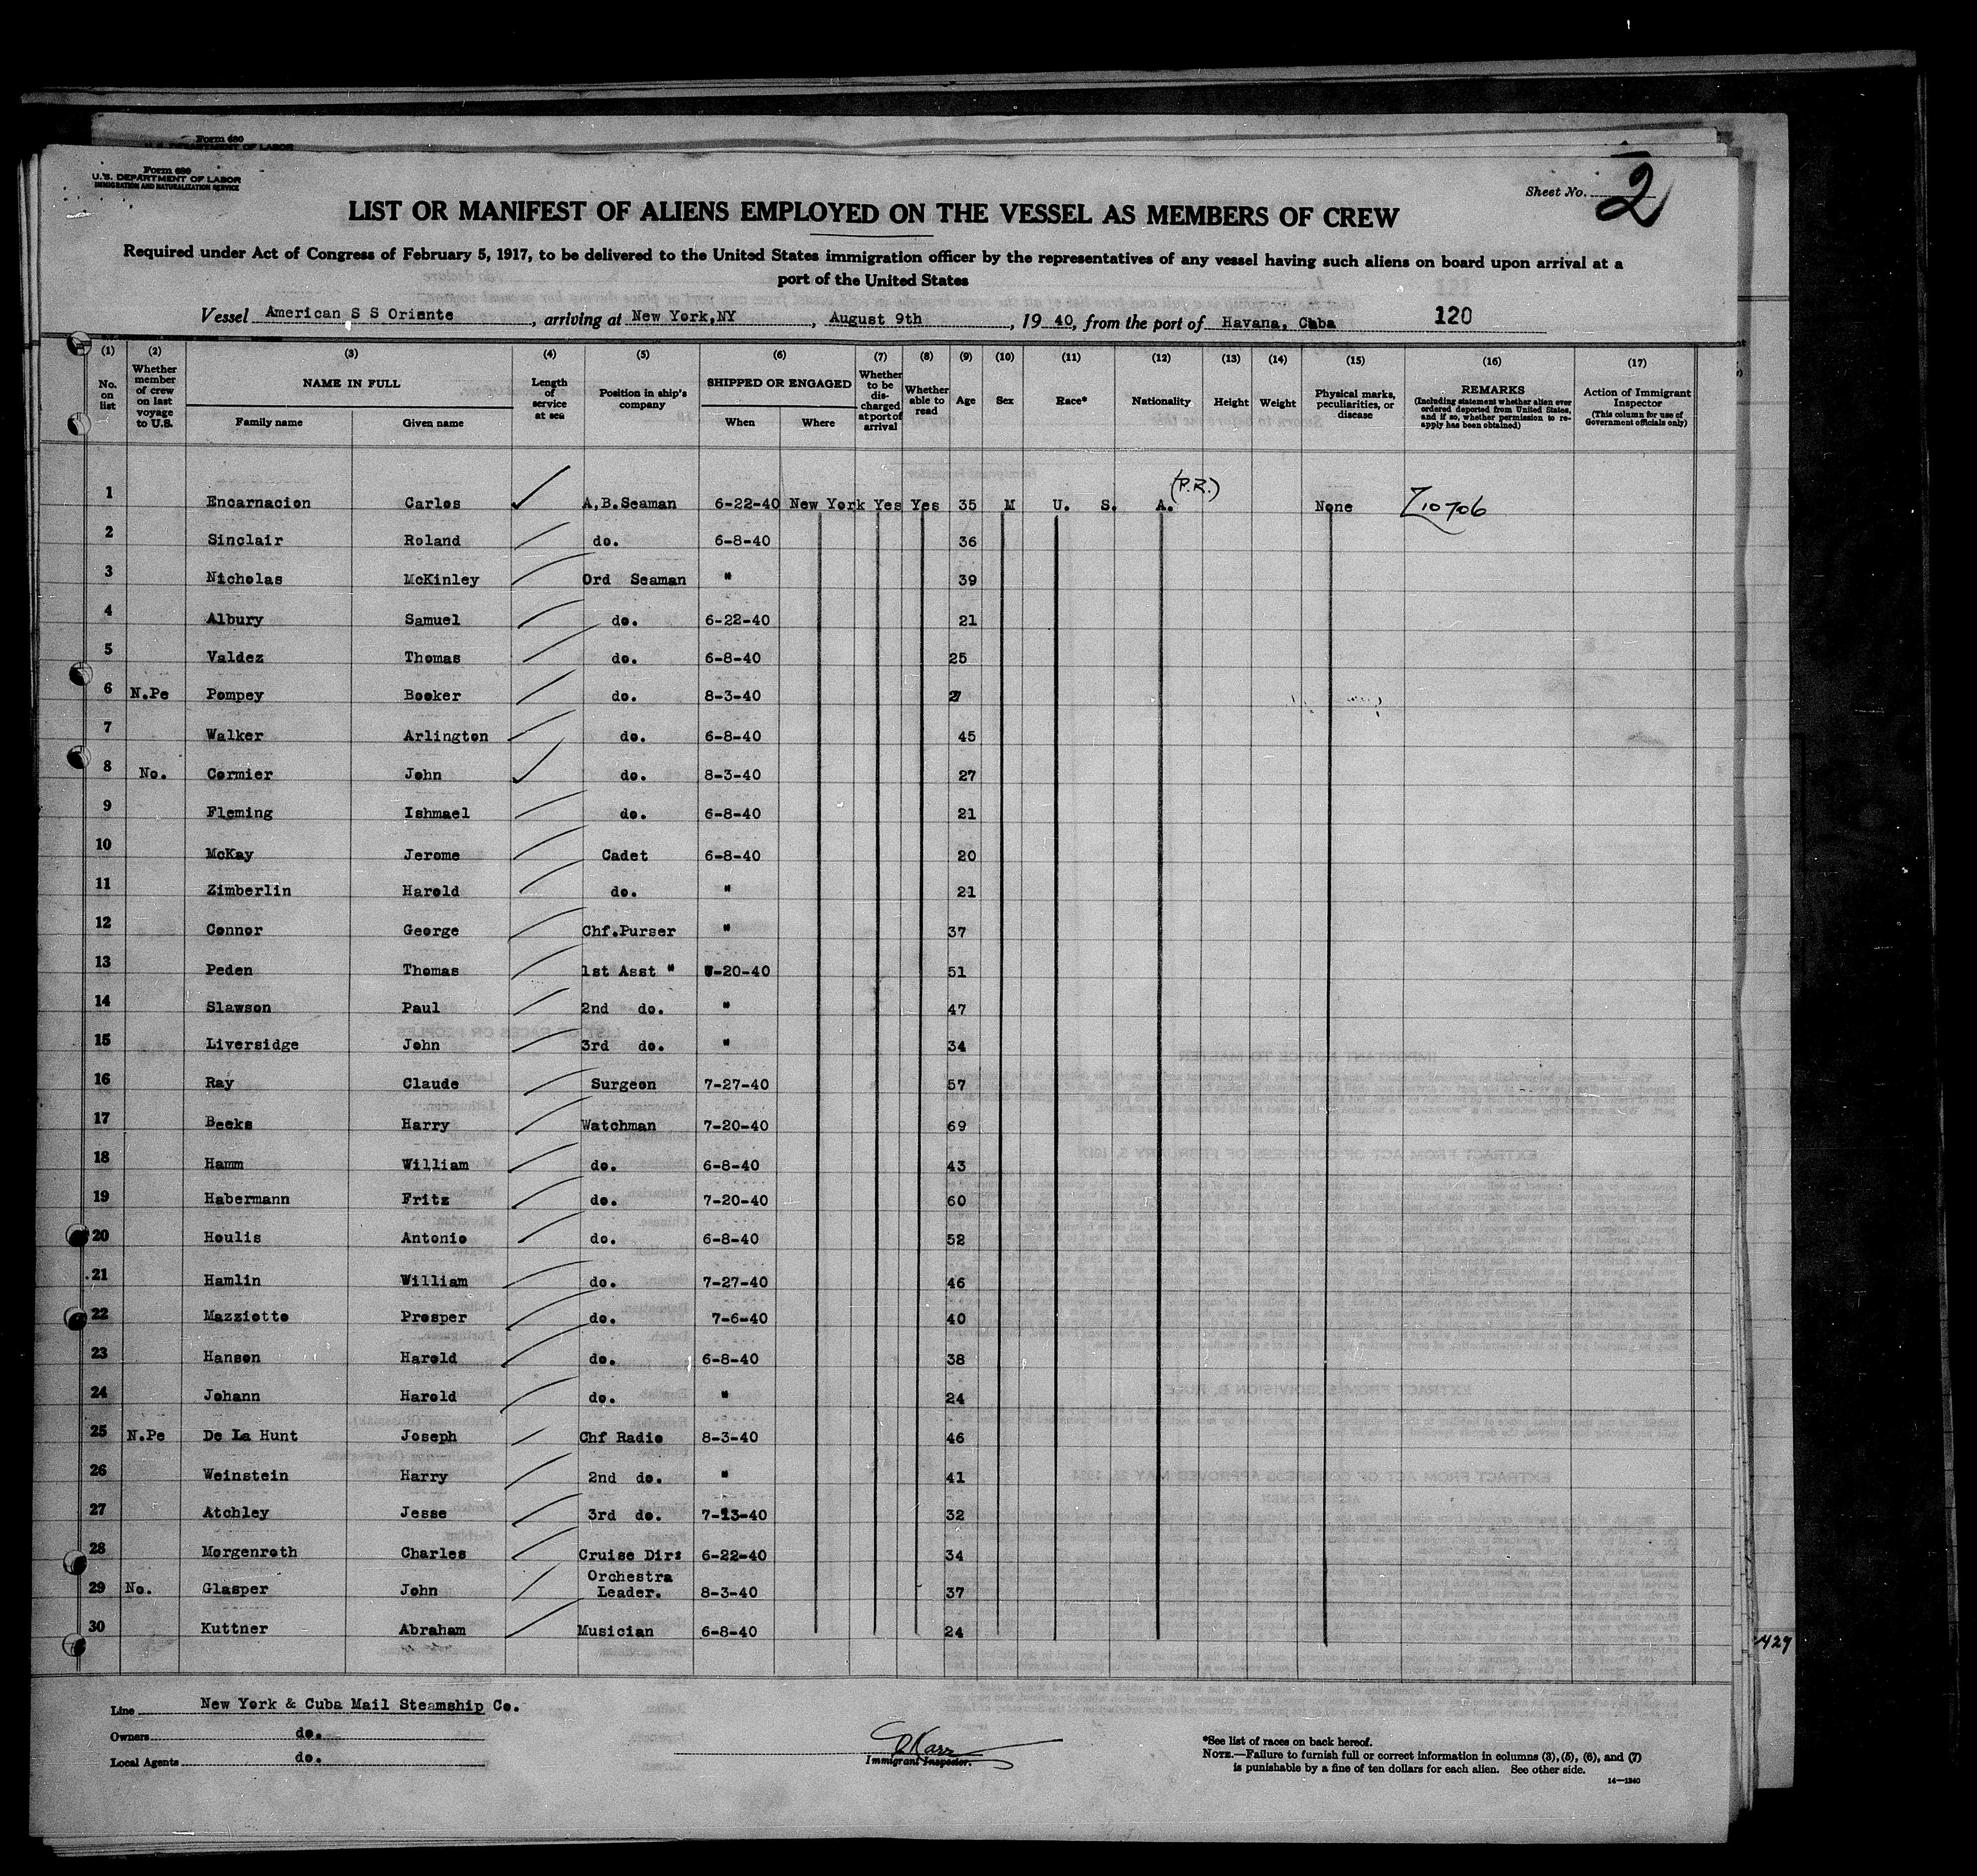 Form 680
U.S. DEPARTMENT OF LABOR
Form 680
U.S. DEPARTMENT OF LABOR
IMMIGRATION AND NATURALIZATION SERVICE
Sheet No. 2
LIST OR MANIFEST OF ALIENS EMPLOYED ON THE VESSEL AS MEMBERS OF CREW
Required under Act of Congress of February 5, 1917, to be delivered to the United States immigration officer by the representatives of any vessel having such aliens on board upon arrival at a
port of the United States
Vessel American S S Oriente, arriving at New York,NY, August 9th, 19 40, from the port of Havana, Cuba 120
(1) (2) (3) (4) (5) (6) (7) (8) (9) (10) (11) (12) (13) (14) (15) (16) (17)
No. on list Whether member of crew on last voyage to U.S. NAME IN FULL Family name Given name Length of service at sea Position in ship's company SHIPPED OR ENGAGED When Where Whether to be discharged at port of arrival Whether able to read Age Sex Race* Nationality Height Weight Physical marks, peculiarities, or disease REMARKS (Including statement whether alien ever ordered deported from United States, and if so, whether permission to reapply has been obtained) Action of Immigrant Inspector (This column for use of Government officials only)
1 Encarnacion Carlos A,B.Seaman 6-22-40 New York Yes Yes 35 M U. S. A. (P.R.) None Z10706
2 Sinclair Roland do. 6-8-40 36
3 Nicholas McKinley Ord Seaman " 39
4 Albury Samuel do. 6-22-40 21
5 Valdez Thomas do. 6-8-40 25
6 N.Pe Pompey Booker do. 8-3-40 27
7 Walker Arlington do. 6-8-40 45
8 No. Cormier John do. 8-3-40 27
9 Fleming Ishmael do. 6-8-40 21
10 McKay Jerome Cadet 6-8-40 20
11 Zimberlin Harold do. " 21
12 Connor George Chf.Purser " 37
13 Peden Thomas 1st Asst " 7-20-40 51
14 Slawson Paul 2nd do. " 47
15 Liversidge John 3rd do. " 34
16 Ray Claude Surgeon 7-27-40 57
17 Beeks Harry Watchman 7-20-40 69
18 Hamm William do. 6-8-40 43
19 Habermann Fritz do. 7-20-40 60
20 Houlis Antonio do. 6-8-40 52
21 Hamlin William do. 7-27-40 46
22 Mazziotto Prosper do. 7-6-40 40
23 Hanson Harold do. 6-8-40 38
24 Johann Harold do. " 24
25 N.Pe De La Hunt Joseph Chf Radio 8-3-40 46
26 Weinstein Harry 2nd do. " 41
27 Atchley Jesse 3rd do. 7-13-40 32
28 Morgenroth Charles Cruise Dir: 6-22-40 34
29 No. Glasper John Orchestra Leader. 8-3-40 37
30 Kuttner Abraham Musician 6-8-40 24
429
Line New York & Cuba Mail Steamship Co.
Owners do.
Local Agents do.
Karr
Immigrant Inspector.
*See list of races on back hereof.
NOTE.—Failure to furnish full or correct information in columns (3), (5), (6), and (7)
is punishable by a fine of ten dollars for each alien. See other side.
14—1240